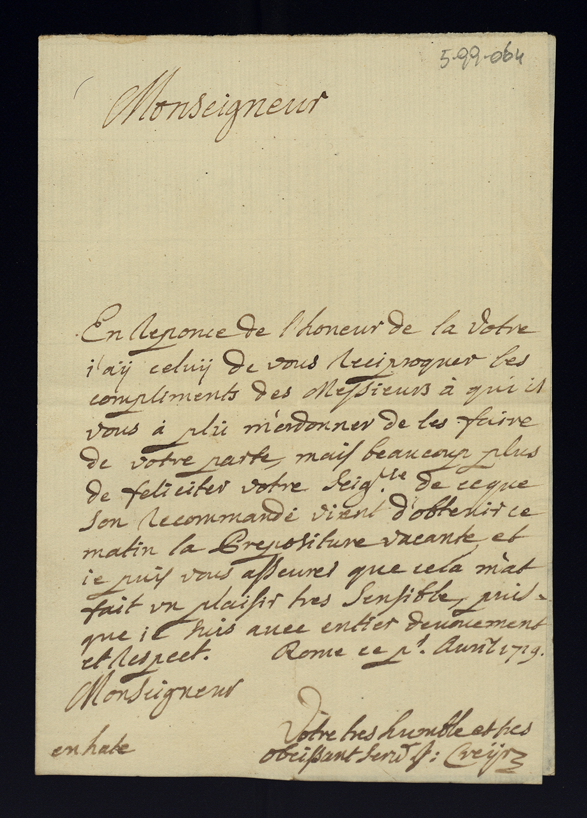 5-99-064
Monseigneur
En Reponce de l'honeur de la Votre
i'aÿ celuÿ de vous Reciproquer les
compliments des Messieurs à qui il
vous à plü m'ordonner de les faire
de votre parte, mais beaucoup plus
de feliciter votre Seig.rie de ceque
son Recommandé vient d'obtenir ce
matin la Prepositure vacante, et
ie puis vous asseurer que cela m'at
fait un plaisir tres Sensible, puis-
que ie suis avec entier devouement
et Respect. Rome ce pr. Avril 1719.
Monseigneur
Votre tres humble et tres
en hate obeissant Serv.